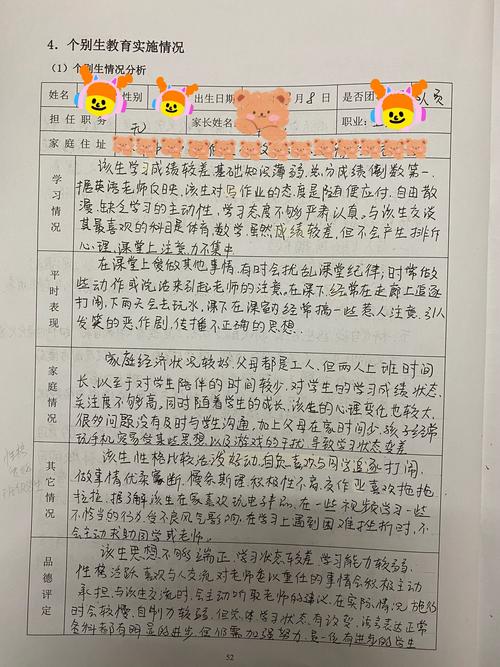 4. 个别生教育实施情况
(1) 个别生情况分析
姓名 性别 出生日期 月8日 是否团 队员
担任职务 无 家长姓名 职业:
家庭住址
学习情况
该生学习成绩较差基础知识薄弱,总分成绩倒数第一
据英语老师反映,该生对写作业的态度是随便应付,自由散
漫,缺乏学习的主动性,学习态度不够严肃认真,与该生交谈
其最喜欢的科目是体育数学,虽然成绩较差,但不会产生排斥
心理,课堂上注意力不集中
平时表现
在课堂上爱做其他事情,有时会扰乱课堂纪律,时常做
些动作或说话来引起老师的注意,在课下,经常在走廊上追逐
打闹,下雨天会去玩水,课下在课室内经常搞一些惹人注意,引人
发笑的恶作剧,传播不正确的思想.
家庭情况
家庭经济状况较好,父母都是工人,但两人上班时间
长,以至于对学生陪伴的时间较少,对学生的学习成绩状态,
关注度不够高,同时随着学生的成长,该生的心理变化也较大
很多问题没有及时与学生沟通,加上父母在家时间少,孩子经常
玩手机,容易受某些思想以及游戏的干扰,导致学习状态变差
其它情况
该生性格比较活泼好动,自负,喜欢与同学追逐打闹,
做事情优柔寡断,慢条斯理,积极性不高,交作业喜欢拖拖
拉拉,据了解该生在家喜欢玩电子产品,在一些视频学习一些
不恰当的行为,受不良风气影响,在学习上遇到困难挫折时,不
会主动求助同学或老师.
品德评定
该生思想不够端正,学习状态较差,学习能力较弱,
性格活跃,喜欢与人交流,对老师委以重任的事情会积极主动
承担,与该生交流时,会主动听取老师的建议,在实际情况施行
时会较慢,自制力较弱,但总体学习状态,有改变,语言表达正常
各科都有明显的进步,但仍需加强努力,是一位有进步的学生
性格
52